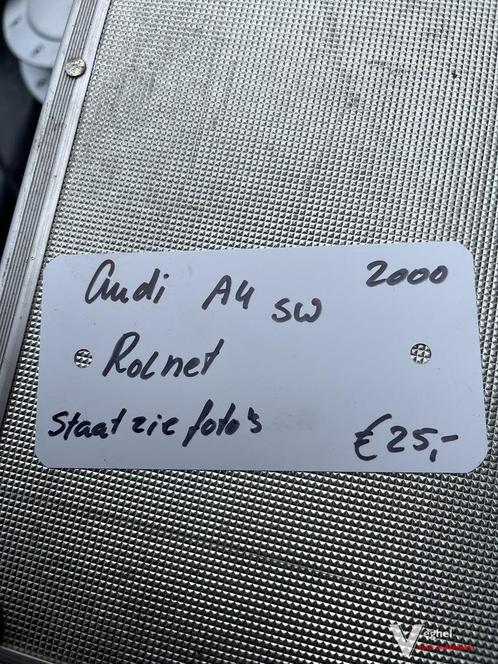 Audi A4 SW 2000
Rolnet
Staat zie foto's
€25,-
Veghel